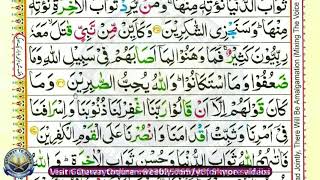 ثَوَابَ الدُّنْيَا نُؤْتِهٖ مِنْهَا ۚ وَمَنْ يُّرِدْ ثَوَابَ الْاٰخِرَةِ نُؤْتِهٖ
مِنْهَا ؕ وَسَنَجْزِي الشّٰكِرِيْنَ ۝ وَكَاَيِّنْ مِّنْ نَّبِيٍّ قٰتَلَ ۙ مَعَهٗ
رِبِّيُّوْنَ كَثِيْرٌ ۚ فَمَا وَهَنُوْا لِمَاۤ اَصَابَهُمْ فِيْ سَبِيْلِ اللّٰهِ وَمَا
ضَعُفُوْا وَمَا اسْتَكَانُوْا ؕ وَاللّٰهُ يُحِبُّ الصّٰبِرِيْنَ ۝ وَمَا
كَانَ قَوْلَهُمْ اِلَّاۤ اَنْ قَالُوْا رَبَّنَا اغْفِرْ لَنَا ذُنُوْبَنَا وَاِسْرَافَنَا
فِيْۤ اَمْرِنَا وَثَبِّتْ اَقْدَامَنَا وَانْصُرْنَا عَلَى الْقَوْمِ الْكٰفِرِيْنَ ۝
اللّٰهُ ثَوَابَ الدُّنْيَا وَحُسْنَ ثَوَابِ الْاٰخِرَةِ ؕ وَاللّٰهُ
ad Jointly, There Will Be Amalgamation (Mixing The Voice
Visit Gateway weebly.com/ for more videos